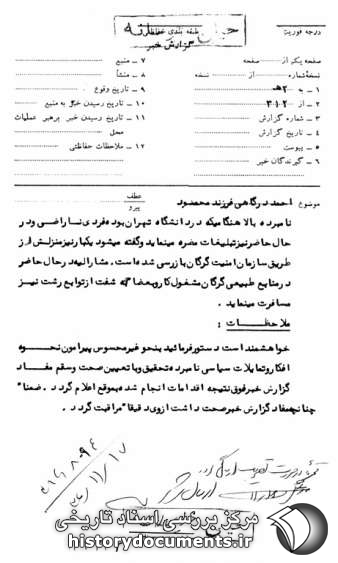 درجه فوریت
طبقه بندی حفاظتی
گزارش خبر
صفحه یک از صفحه
نسخه شماره از نسخه
۱ - به ۲۰ هـ
۲ - از ۳۱۲
۳ - شماره گزارش
۴ - تاریخ گزارش
۵ - پیوست
۶ - گیرندگان خبر
۷ - منبع
۸ - منشأ
۹ - تاریخ وقوع
۱۰ - تاریخ رسیدن خبر به منبع
۱۱ - تاریخ رسیدن خبر برهبر عملیات
محل
۱۲ - ملاحظات حفاظتی
موضوع احمد درگاهی فرزند محمود
عطف
پیرو
نامبرده بالا هنگامیکه در دانشگاه تهران بوده فردی ناراضی و در
حال حاضر نیز تبلیغات مضره مینماید و گفته میشود یکبار نیز منزلش از
طریق سازمان امنیت گرگان بازرسی شده است. مشارالیه در حال حاضر
در منابع طبیعی گرگان مشغول کار و بعضا گه شفت از توابع رشت نیز
مسافرت مینماید.
ملاحظات :
خواهشمند است دستور فرمائید بنحو غیر محسوس پیرامون نحوه
افکار و تمایلات سیاسی نامبرده تحقیق و با تعیین صحت و سقم مفاد
گزارش خبر فوق نتیجه اقدامات انجام شده بموقع اعلام گردد. ضمنا"
چنانچه مفاد گزارش خبر صحت داشت از وی دقیقا" مراقبت گردد.
مرکز بررسی اسناد تاریخی
historydocuments.ir